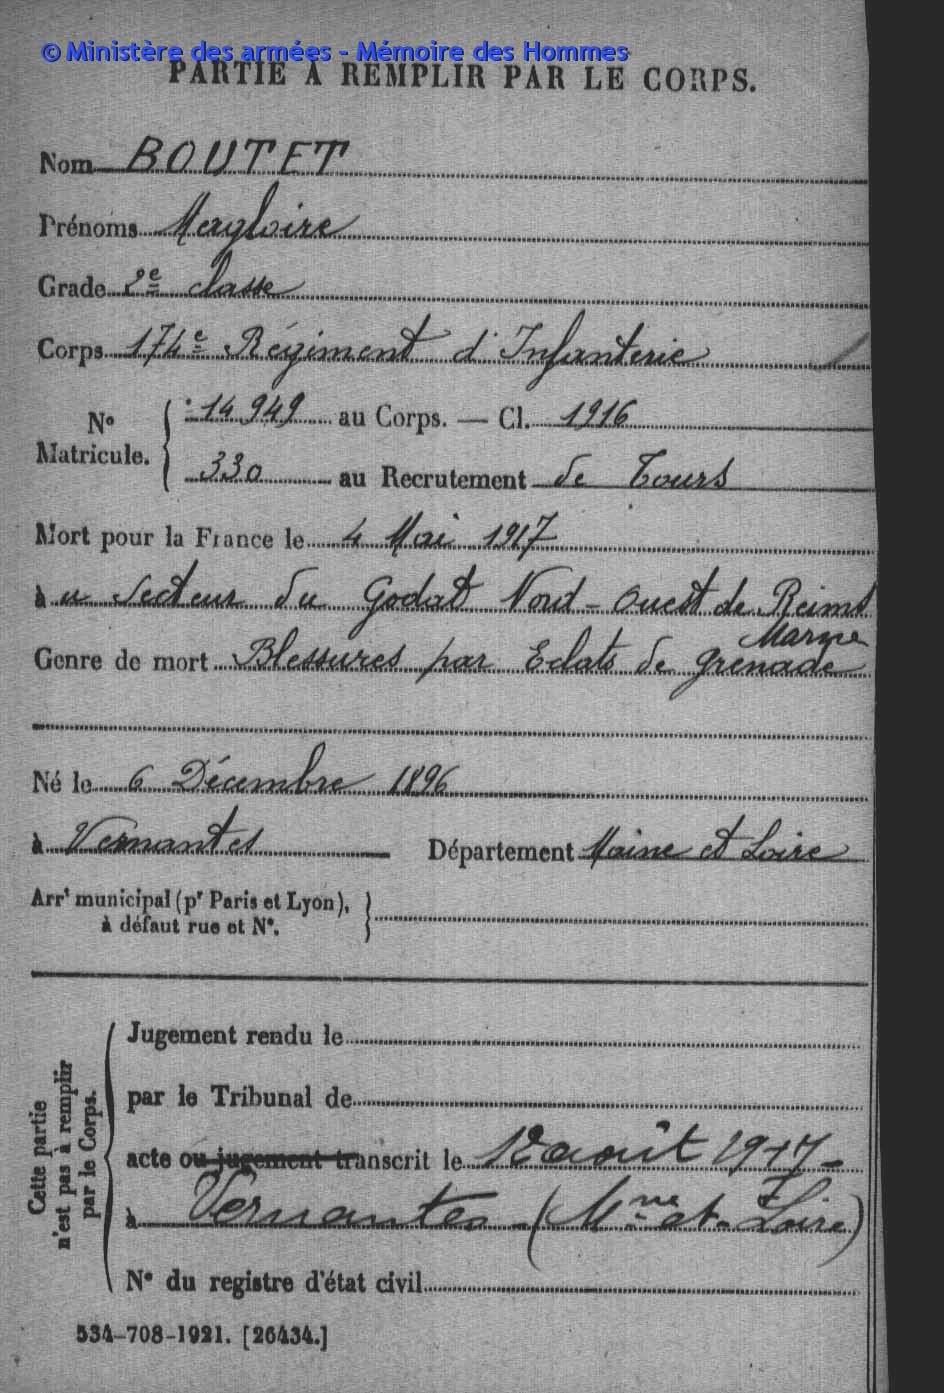 © Ministère des armées - Mémoire des Hommes
PARTIE A REMPLIR PAR LE CORPS.
Nom BOUTET
Prénoms Magloire
Grade 2e classe
Corps 174e Régiment d'Infanterie
No Matricule. 14 949 au Corps. — Cl. 1916
330 au Recrutement de Tours
Mort pour la France le 4 Mai 1917
à u Secteur du Godat Nord-Ouest de Reims
Marne
Genre de mort Blessures par Eclats de grenade
Né le 6 Décembre 1896
à Vernantes Département Maine et Loire
Arrt municipal (pr Paris et Lyon),
à défaut rue et No.
Cette partie
n'est pas à remplir
par le Corps.
Jugement rendu le
par le Tribunal de
acte ou jugement transcrit le 12 août 1917-
à Vernantes - (Mne et-Loire)
No du registre d'état civil
534-708-1921. [26434.]